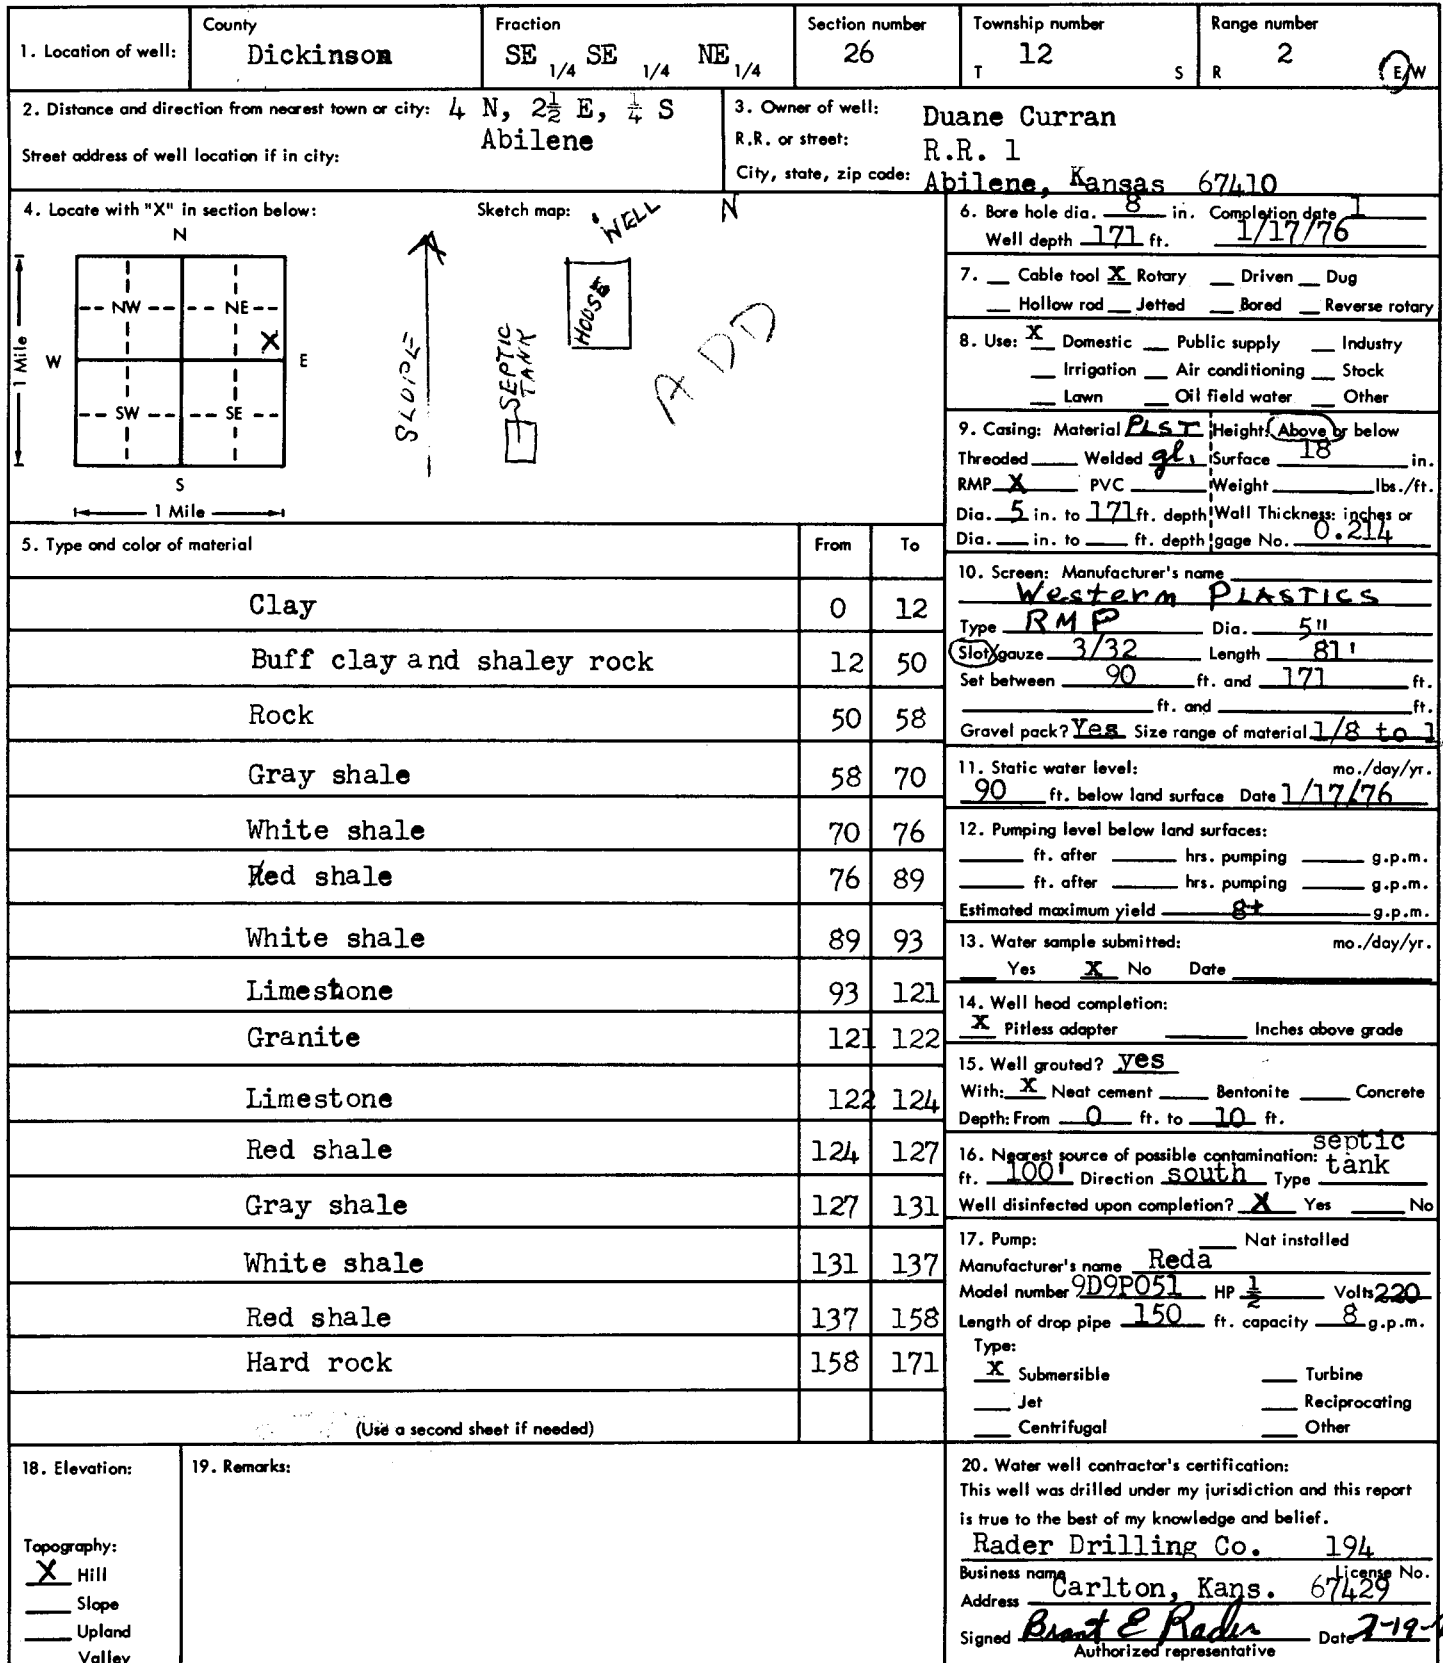 1. Location of well:
County
Dickinson
Fraction
SE 1/4 SE 1/4 NE 1/4
Section number
26
Township number
T 12 S
Range number
R 2 E/W
2. Distance and direction from nearest town or city: 4 N, 2½ E, ¼ S
Abilene
Street address of well location if in city:
3. Owner of well: Duane Curran
R.R. or street: R.R. 1
City, state, zip code: Abilene, Kansas 67410
4. Locate with "X" in section below:
N
NW NE
X
W E
SW SE
S
1 Mile
1 Mile
Sketch map:
WELL
N
SLOPE
HOUSE
SEPTIC TANK
ADD
5. Type and color of material From To
Clay 0 12
Buff clay and shaley rock 12 50
Rock 50 58
Gray shale 58 70
White shale 70 76
Red shale 76 89
White shale 89 93
Limestone 93 121
Granite 121 122
Limestone 122 124
Red shale 124 127
Gray shale 127 131
White shale 131 137
Red shale 137 158
Hard rock 158 171
(Use a second sheet if needed)
6. Bore hole dia. 8 in. Completion date 1
Well depth 171 ft. 1/17/76
7. __ Cable tool X Rotary __ Driven __ Dug
__ Hollow rod __ Jetted __ Bored __ Reverse rotary
8. Use: X Domestic __ Public supply __ Industry
__ Irrigation __ Air conditioning __ Stock
__ Lawn __ Oil field water __ Other
9. Casing: Material PLST Height: Above or below
Threaded ____ Welded gl. Surface 18 in.
RMP X PVC ____ Weight ____ lbs./ft.
Dia. 5 in. to 171 ft. depth Wall Thickness: inches or
Dia. ___ in. to ___ ft. depth gage No. 0.214
10. Screen: Manufacturer's name
Western PLASTICS
Type RMP Dia. 5"
Slot/gauze 3/32 Length 81'
Set between 90 ft. and 171 ft.
____ ft. and ____ ft.
Gravel pack? Yes Size range of material 1/8 to 1
11. Static water level: mo./day/yr.
90 ft. below land surface Date 1/17/76
12. Pumping level below land surfaces:
____ ft. after ____ hrs. pumping ____ g.p.m.
____ ft. after ____ hrs. pumping ____ g.p.m.
Estimated maximum yield 8+ g.p.m.
13. Water sample submitted: mo./day/yr.
___ Yes X No Date
14. Well head completion:
X Pitless adapter ____ Inches above grade
15. Well grouted? yes
With: X Neat cement ____ Bentonite ____ Concrete
Depth: From 0 ft. to 10 ft.
16. Nearest source of possible contamination: septic
ft. 100' Direction south Type tank
Well disinfected upon completion? X Yes ____ No
17. Pump: ___ Not installed
Manufacturer's name Reda
Model number 9D9P051 HP ½ Volts 220
Length of drop pipe 150 ft. capacity 8 g.p.m.
Type:
X Submersible ___ Turbine
___ Jet ___ Reciprocating
___ Centrifugal ___ Other
18. Elevation:
Topography:
X Hill
___ Slope
___ Upland
Valley
19. Remarks:
20. Water well contractor's certification:
This well was drilled under my jurisdiction and this report
is true to the best of my knowledge and belief.
Rader Drilling Co. 194
Business name License No.
Address Carlton, Kans. 67429
Signed Brant E Rader Date
Authorized representative